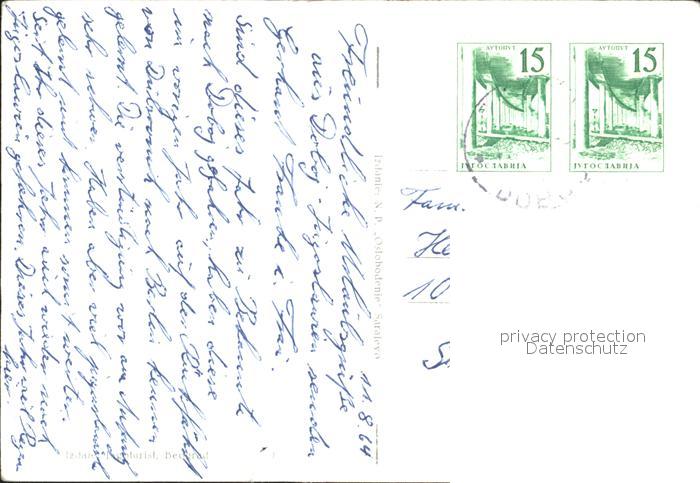 11.8.64
Freundliche Urlaubsgrüße
aus Doboj - Jugoslawien senden
Gerhard u. Frau.
Sind dieses Jahr zu Bekannte
nach Doboj gefahren, haben diese
im vorigen Jahr auf der Rückfahrt
von Dubrovnik nach Berlin kennen
gelernt. Die Verständigung war am Anfang
sehr schwer. Haben aber viel jugoslawisch
gelernt und kommen somit weiter.
Seit Ihr dieses Jahr auch wieder nach
Jugoslawien gefahren. Dieses Jahr viel Regen
hier.
Izdanje N. P. „Oslobođenje" Sarajevo
Izdanje Jugoturist, Beograd
АУТОПУТ 15
ЈУГОСЛАВИЈА
АУТОПУТ 15
ЈУГОСЛАВИЈА
DOBOJ
Fam.
He
10
privacy protection
Datenschutz